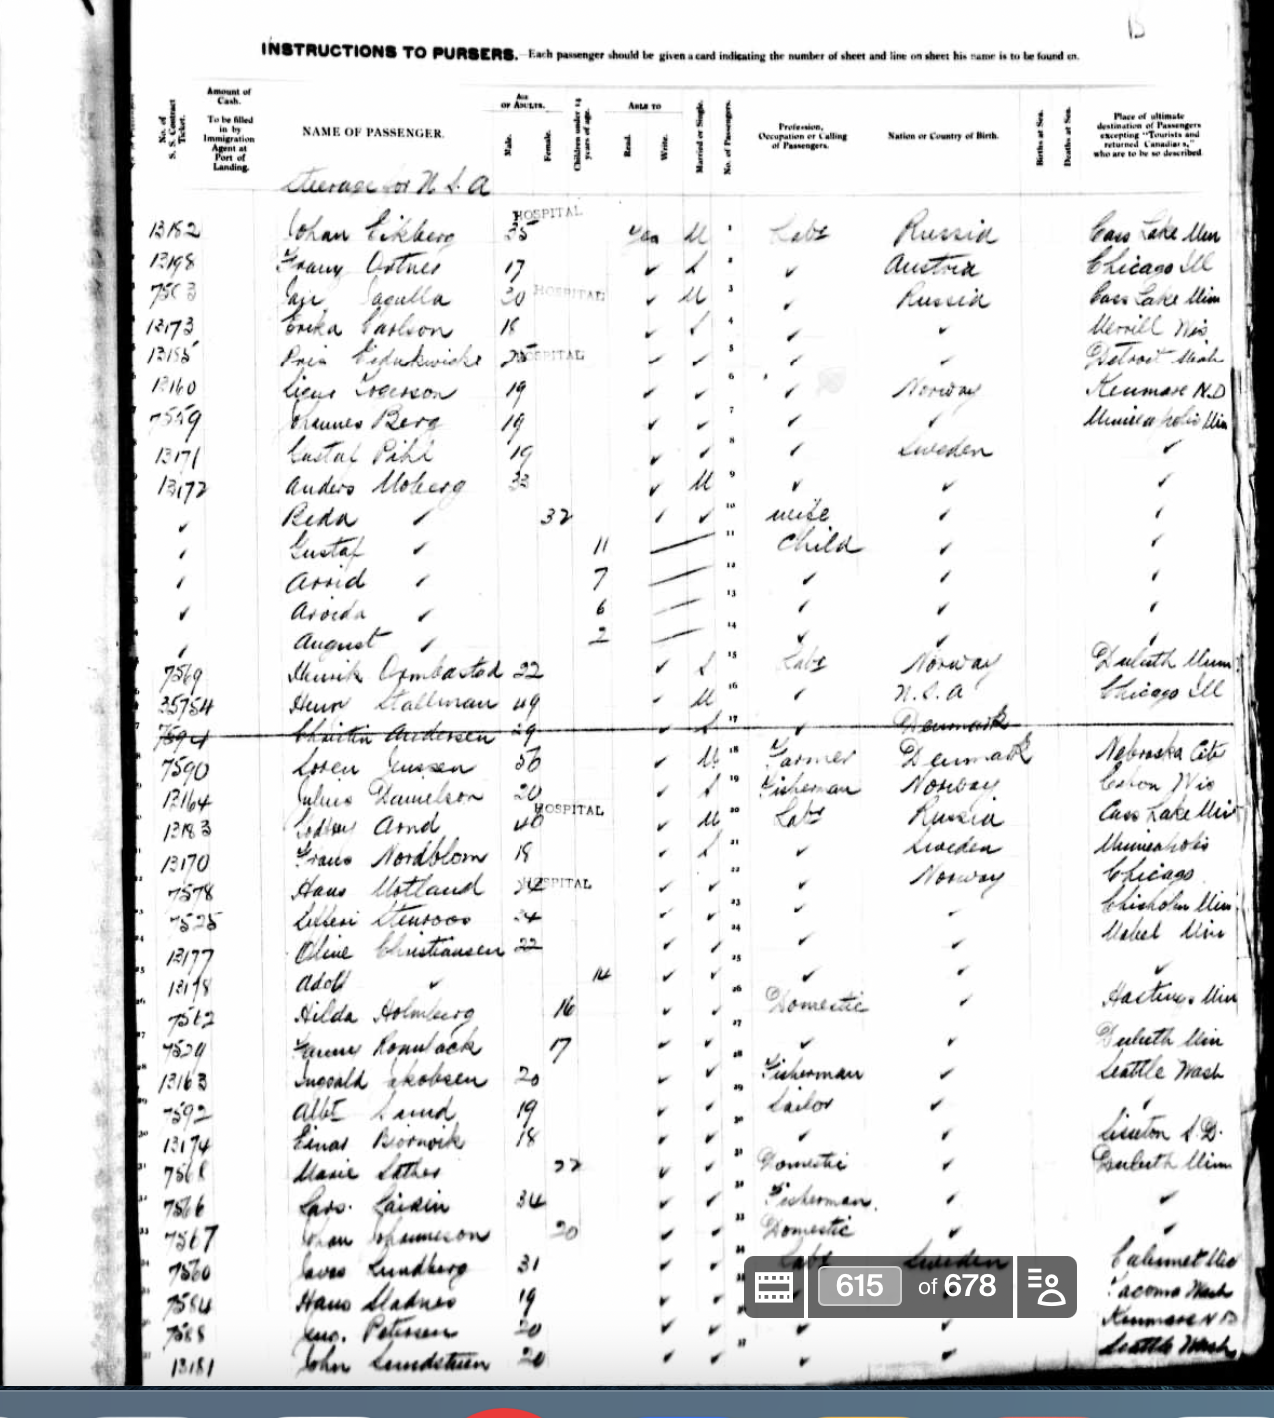 15
INSTRUCTIONS TO PURSERS.—Each passenger should be given a card indicating the number of sheet and line on sheet his name is to be found on.
No. of S. S. Contract Ticket. Amount of Cash. To be filled in by Immigration Agent at Port of Landing. NAME OF PASSENGER. AGE OF ADULTS. Male. Female. Children under 14 years of age. ABLE TO Read. Write. Married or Single. No. of Passengers. Profession, Occupation or Calling of Passengers. Nation or Country of Birth. Births at Sea. Deaths at Sea. Place of ultimate destination of Passengers excepting "Tourists and returned Canadians," who are to be so described.
Steerage for U.S.A
HOSPITAL
13182 Johan Eikberg 35 yes M 1 Labr Russia Cass Lake Min
13198 Franz Ortner 17 ✓ S 2 ✓ Austria Chicago Ill
30 HOSPITAL ✓ M 3 ✓ Russia Cass Lake Min
13173 Erika Carlson 18 ✓ S 4 ✓ ✓ Merrill Wis
13195 25 HOSPITAL ✓ ✓ 5 ✓ ✓ Detroit Mich
13160 19 ✓ ✓ 6 ✓ Norway Kenmare N.D
7559 Johannes Berg 19 ✓ ✓ 7 ✓ ✓ Minneapolis Min
13171 Gustaf Pihl 19 ✓ ✓ 8 ✓ Sweden ✓
13172 Anders Moberg 33 ✓ M 9 ✓ ✓ ✓
✓ Beda ✓ 32 ✓ ✓ 10 wife ✓ ✓
✓ Gustaf ✓ 11 11 Child ✓ ✓
✓ Arvid ✓ 7 12 ✓ ✓ ✓
✓ Arvida ✓ 6 13 ✓ ✓ ✓
✓ August ✓ 2 14 ✓ ✓ ✓
7569 Henrik 22 ✓ S 15 Labr Norway Duluth Minn
35754 Henry Stallman 49 M 16 ✓ U.S.A Chicago Ill
Christin Andersen 29 S 17 ✓ Denmark
7590 Soren Jenssen 36 ✓ M 18 Farmer Denmark Nebraska City
13164 Julius Danielson 20 ✓ S 19 Fisherman Norway Wis
13183 Arnd 40 HOSPITAL ✓ M 20 Labr Russia Cass Lake Min
13170 Frans Nordblom 18 ✓ S 21 ✓ Sweden Minneapolis
7578 Hans Motland HOSPITAL ✓ ✓ 22 ✓ Norway Chicago
7525 Stenroos 34 ✓ ✓ 23 ✓ ✓ Chisholm Min
13177 Oline Christiansen 22 ✓ ✓ 24 ✓ ✓ Mabel Min
13178 Adolf ✓ 14 ✓ ✓ 25 ✓ ✓ ✓
7562 Hilda Holmberg 16 ✓ ✓ 26 Domestic ✓ Hastings Min
7529 Fanny 17 ✓ ✓ 27 ✓ ✓ Duluth Min
13163 Ingvald Jakobsen 20 ✓ ✓ 28 Fisherman ✓ Seattle Wash
7592 Albt Lund 19 ✓ ✓ 29 Sailor ✓ ✓
13174 Einar Bjornvik 18 ✓ ✓ 30 ✓ ✓ Sisseton S.D.
7568 Marie Sather 22 ✓ ✓ 31 Domestic ✓ Duluth Minn
7566 Lars 34 ✓ ✓ 32 Fisherman. ✓ ✓
7567 Johan Johanneson 20 ✓ ✓ 33 Domestic ✓ ✓
7560 Lundberg 31 ✓ ✓ 34 Labr Sweden Calumet
7584 Hans 19 ✓ ✓ Tacoma Wash
7588 Petersen 20 ✓ ✓ ✓ ✓ Kenmare N D
13181 John Sundstrom 20 ✓ ✓ 37 ✓ ✓ Seattle Wash
615 of 678